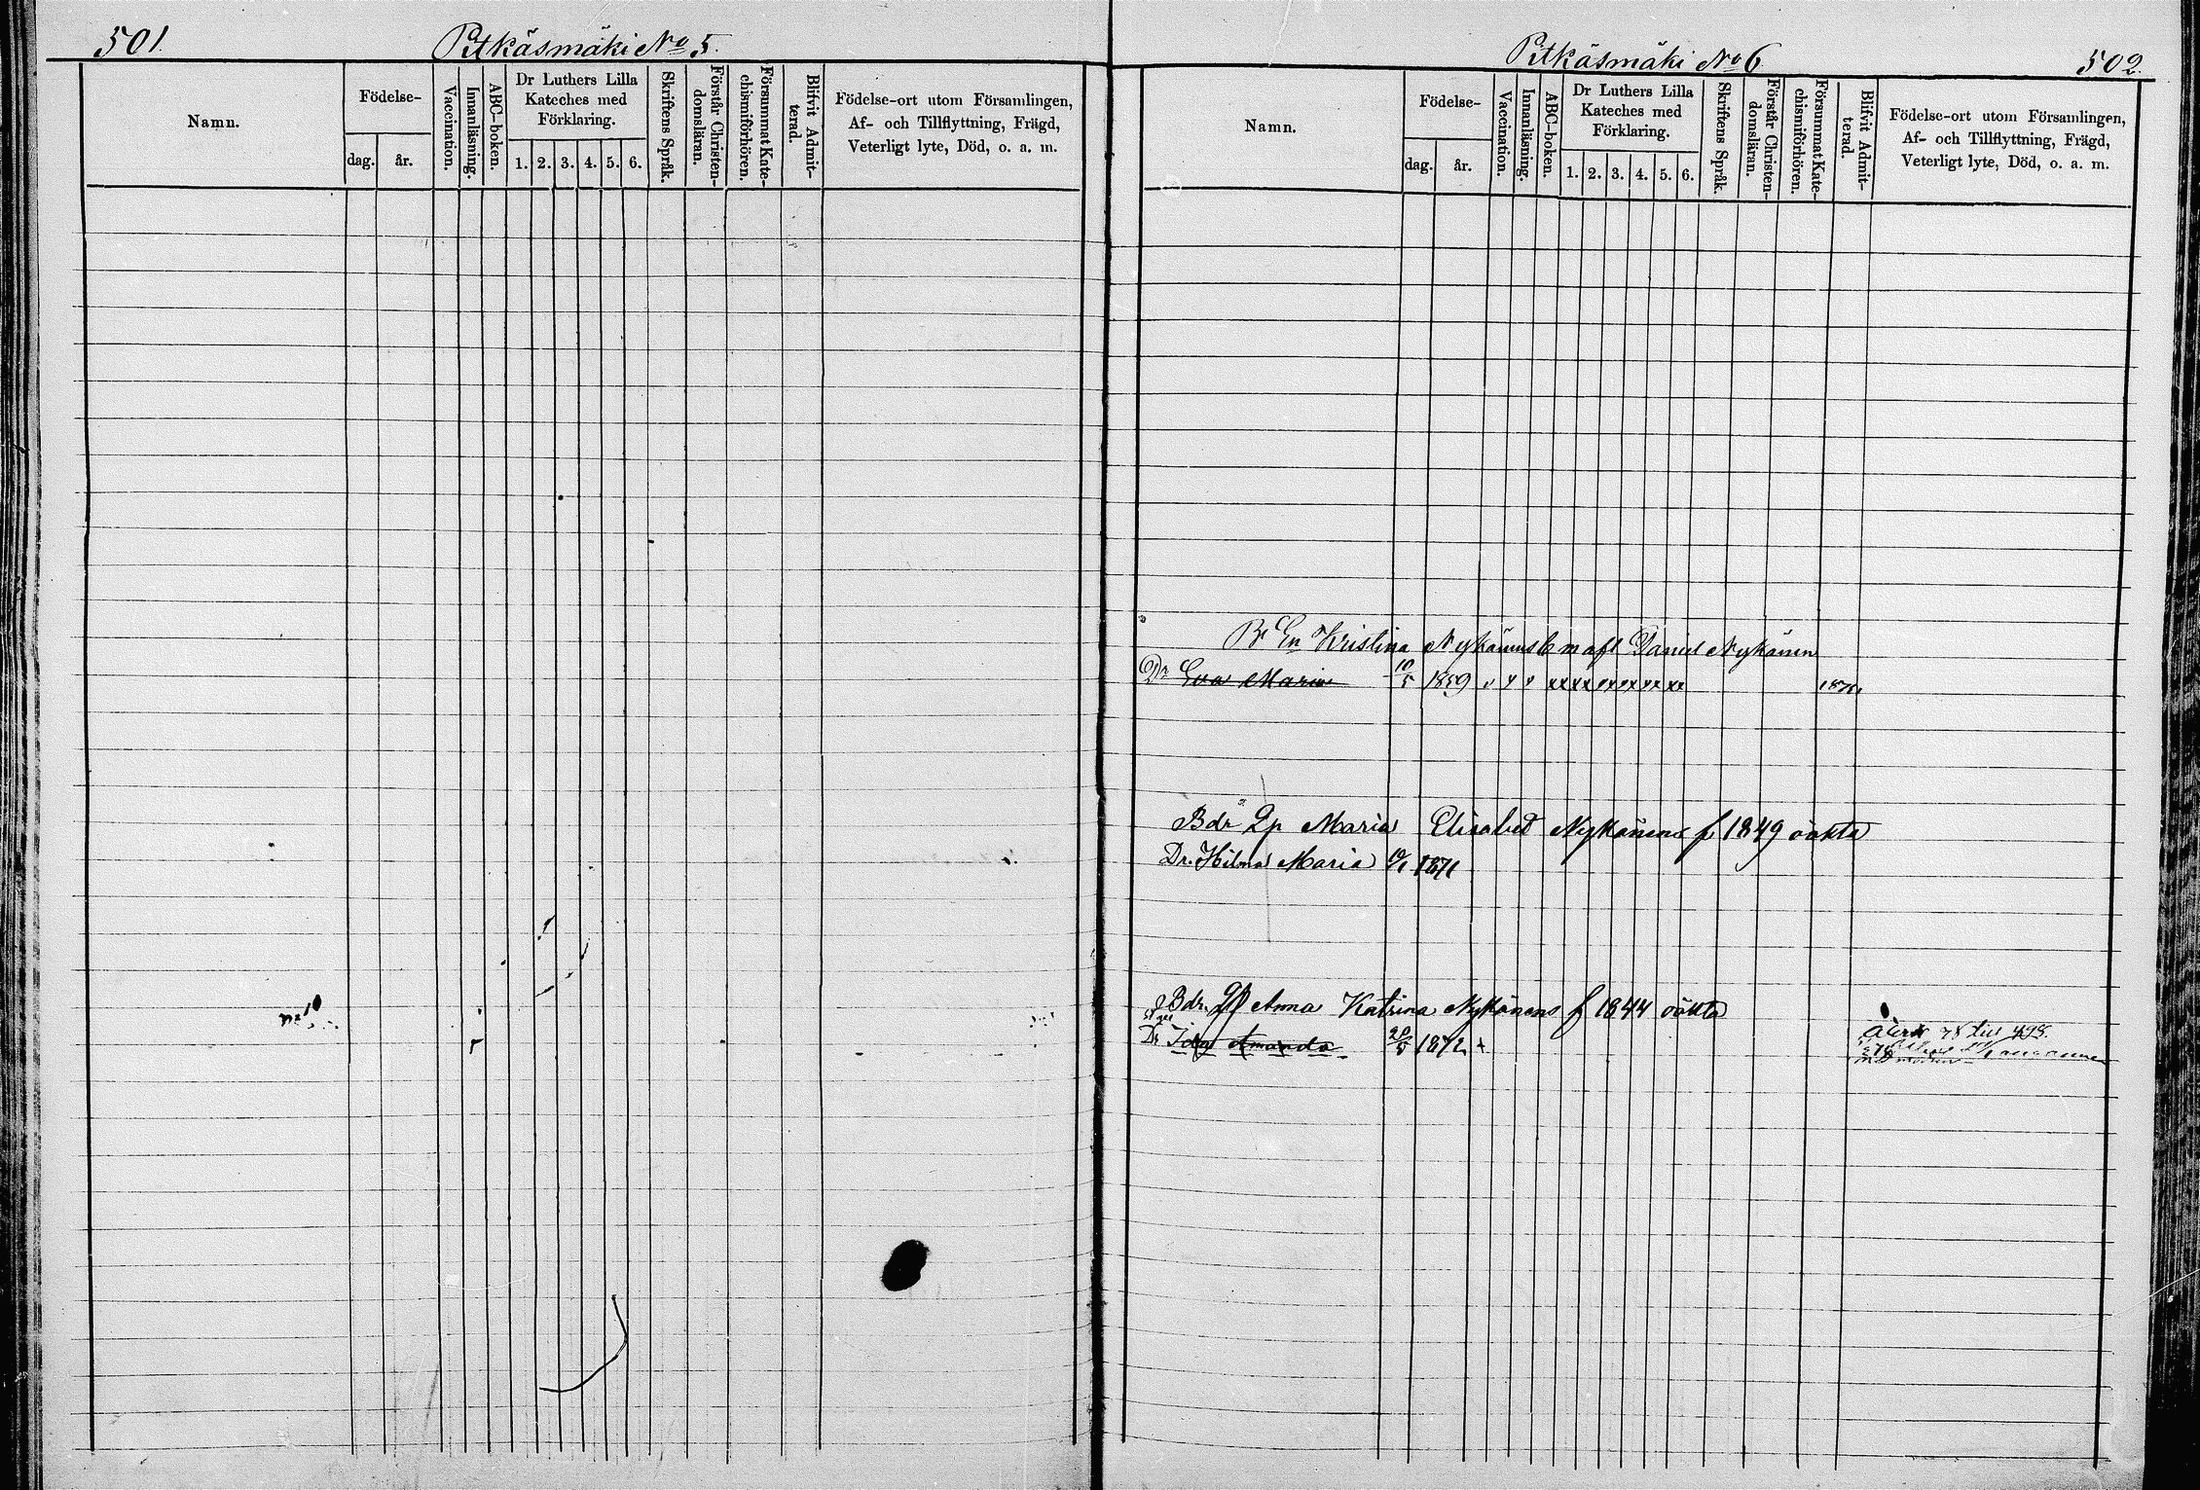 501.
Pitkäsmäki No 5.
Namn.
Födelse-
dag.
år.
Vaccination.
Innanläsning.
ABC-boken.
Dr Luthers Lilla
Kateches med
Förklaring.
1. 2. 3. 4. 5. 6.
Skriftens Språk.
Förstår Christen-
domsläran.
Försummat Kate-
chismiförhören.
Blifvit Admit-
terad.
Födelse-ort utom Församlingen,
Af- och Tillflyttning, Frägd,
Veterligt lyte, Död, o. a. m.
Pitkäsmäki No 6
502.
Namn.
Födelse-
dag.
år.
Vaccination.
Innanläsning.
ABC-boken.
Dr Luthers Lilla
Kateches med
Förklaring.
1. 2. 3. 4. 5. 6.
Skriftens Språk.
Förstår Christen-
domsläran.
Försummat Kate-
chismiförhören.
Blifvit Admit-
terad.
Födelse-ort utom Församlingen,
Af- och Tillflyttning, Frägd,
Veterligt lyte, Död, o. a. m.
Kristina Nykänens Daniel Nykänen
Dr Eva Maria 10/5 1859
Bdr Maria Elisabet Nykänens f 1849 oäkta
Dr. Hilma Maria 1871
Bdr. Anna Katrina Nykänens f 1844 oäkta
Dr Ida Amanda 1872